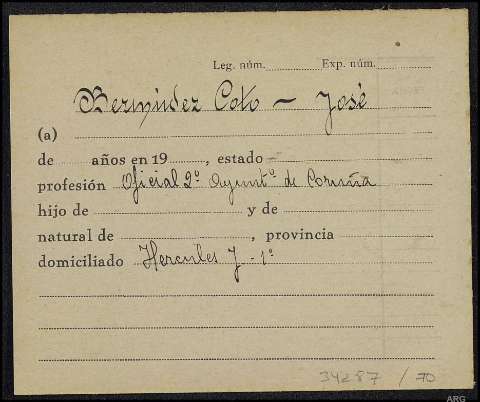 Leg. núm. Exp. núm.
Bermúdez Coto - José
(a)
de años en 19 , estado
profesión Oficial 2º Ayuntº de Coruña
hijo de y de
natural de , provincia
domiciliado Hercules 7 - 1º
34287 / 70
ARG